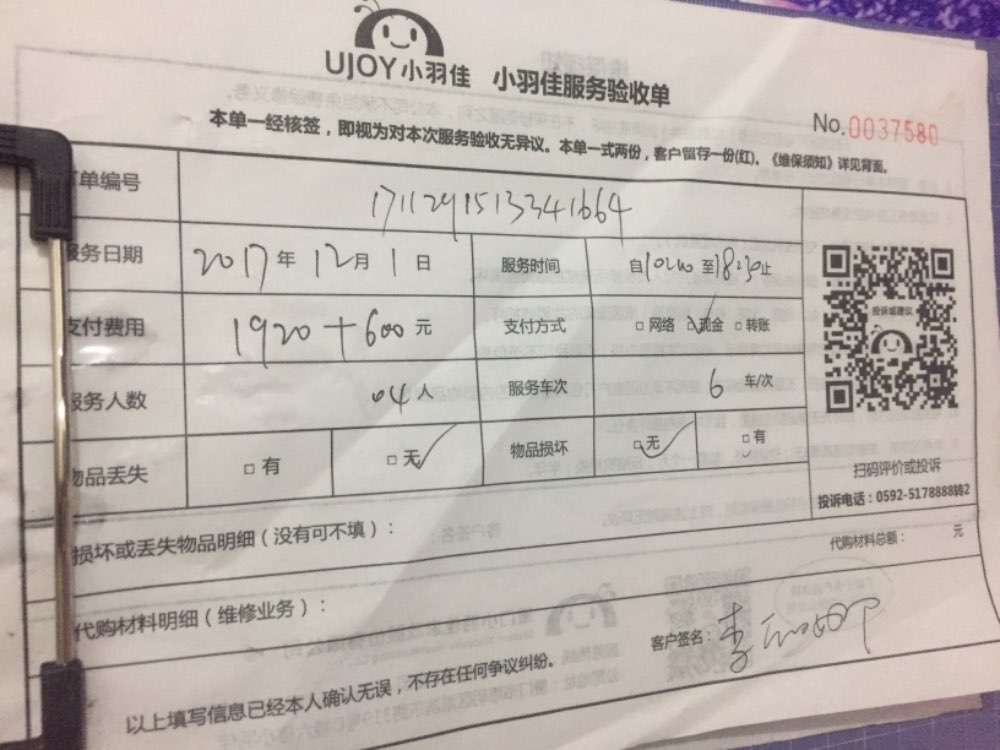 UJOY小羽佳 小羽佳服务验收单
No.0037580
本单一经核签，即视为对本次服务验收无异议。本单一式两份，客户留存一份(红)。《维保须知》详见背面。
单编号 1711291513341664
服务日期 2017年12月1日 服务时间 自10:40至18:30止
支付费用 1920+600元 支付方式 □网络 □现金 □转账
服务人数 04人 服务车次 6车/次
物品丢失 □有 □无 物品损坏 □无 □有
投诉或建议
扫码评价或投诉
投诉电话：0592-5178888转2
损坏或丢失物品明细（没有可不填）：
代购材料总额： 元
代购材料明细（维修业务）：
客户签名：李
以上填写信息已经本人确认无误，不存在任何争议纠纷。